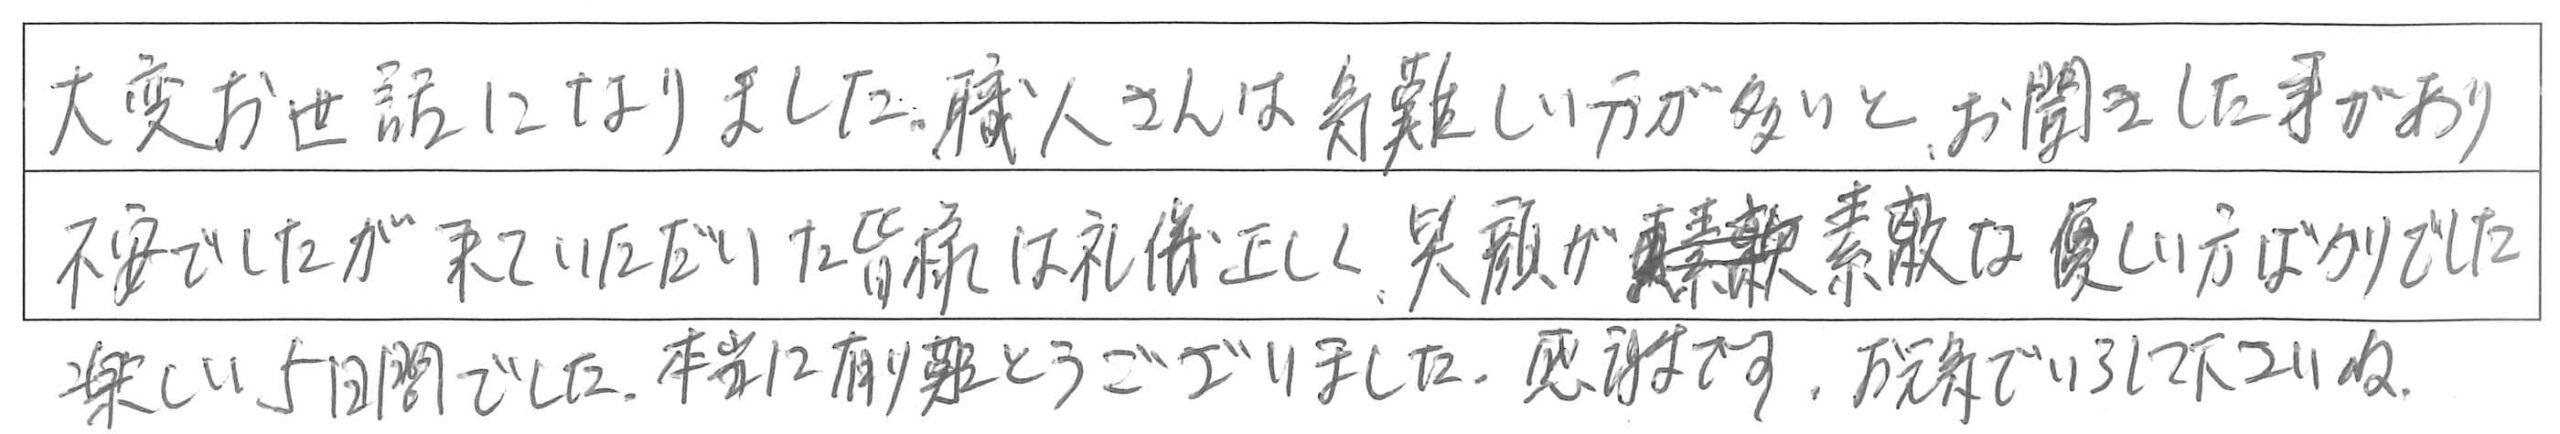 大変お世話になりました。職人さんは気難しい方が多いと、お聞きした事があり
不安でしたが来ていただいた皆様は礼儀正しく、笑顔が素敵な優しい方ばかりでした
楽しい5日間でした。本当に有り難とうございました。感謝です。お元気でいらしてください​ね。